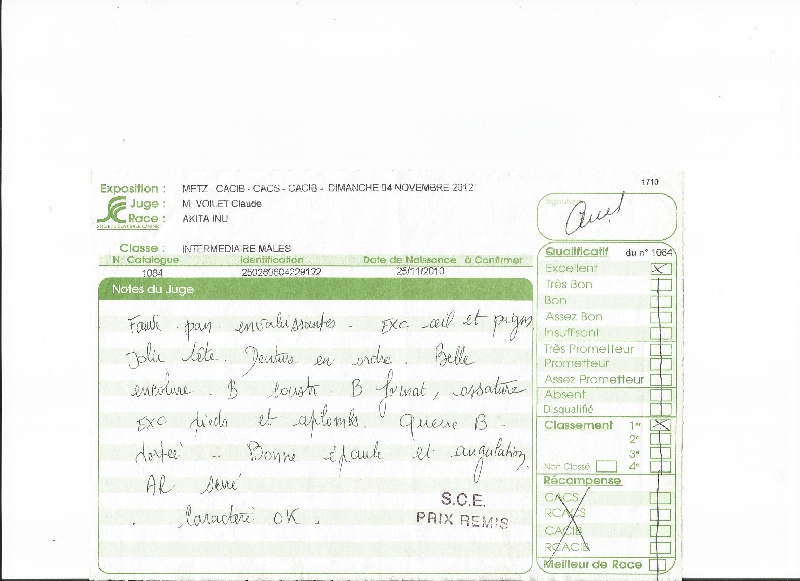 1710
Exposition : METZ CACIB - CACS - CACIB - DIMANCHE 04 NOVEMBRE 2012
Juge : M. VOILET Claude
Race : AKITA INU
SOCIÉTÉ CENTRALE CANINE
Classe : INTERMEDIAIRE MÂLES
N° Catalogue Identification Date de Naissance à Confirmer
1084 250269604229122 25/11/2010
Notes du Juge
pas envahissantes. Exc œil et
Jolie tête. Denture en ordre. Belle
encolure. B constr. B format, ossature
Exc pieds et aplombs. Queue B
portée - Bonne épaule et angulation
AR serré
. Caractère OK .
S.C.E.
PRIX REMIS
Signature
Qualificatif du n° 1084
Excellent
Très Bon
Bon
Assez Bon
Insuffisant
Très Prometteur
Prometteur
Assez Prometteur
Absent
Disqualifié
Classement 1er
2e
3e
Non Classé 4e
Récompense
CACS
RCACS
CACIB
RCACIB
Meilleur de Race